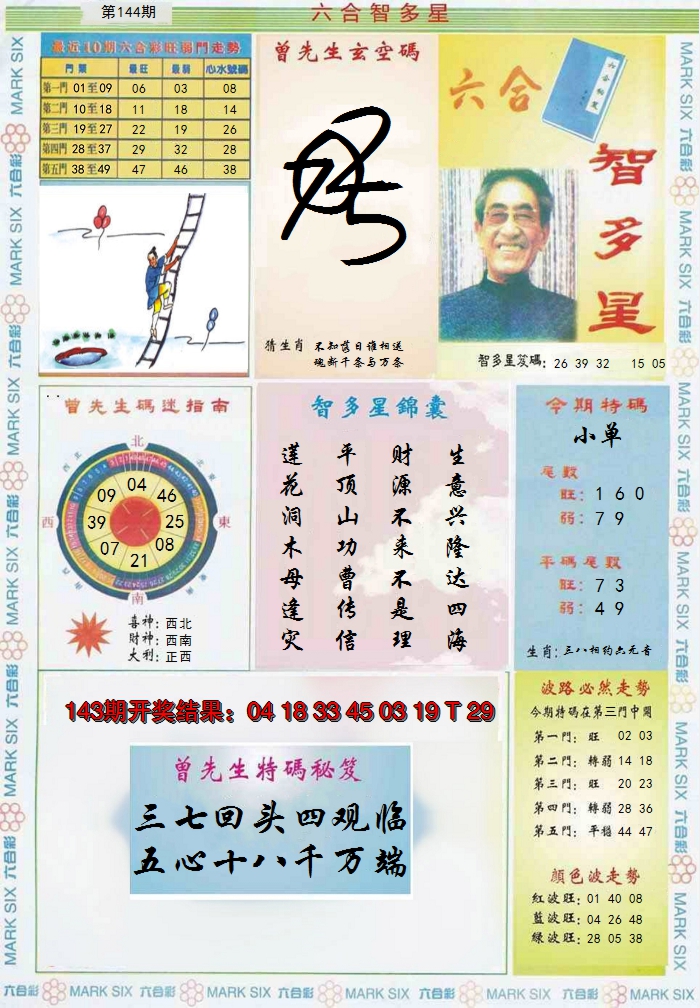 第144期
六合智多星
最近10期六合彩旺弱門走勢
門類 最旺 最弱 心水號碼
第一門 01至09 06 03 08
第二門 10至18 11 18 14
第三門 19至27 22 19 26
第四門 28至37 29 32 28
第五門 38至49 47 46 38
曾先生玄空碼
猜生肖 不知落日谁相送
魂断千条与万条
六合
智多星
智多星笈碼: 26 39 32 15 05
曾先生碼迷指南
北
西北
東北
西
東
南
04
46
25
08
21
07
39
09
喜神: 西北
财神: 西南
大利: 正西
智多星錦囊
生意兴隆达四海
财源不来不是理
平顶山功曹传信
莲花洞木母逢灾
今期特碼
小单
尾數
旺: 1 6 0
弱: 7 9
平碼尾數
旺: 7 3
弱: 4 9
生肖: 三八相约六元音
143期开奖结果: 04 18 33 45 03 19 T 29
曾先生特碼秘笈
三七回头四观临
五心十八千万端
波路必然走勢
今期特碼在第三門中開
第一門: 旺 02 03
第二門: 轉弱 14 18
第三門: 旺 20 23
第四門: 轉弱 28 36
第五門: 平穩 44 47
顏色波走勢
紅波旺: 01 40 08
藍波旺: 04 26 48
綠波旺: 28 05 38
MARK SIX 六合彩